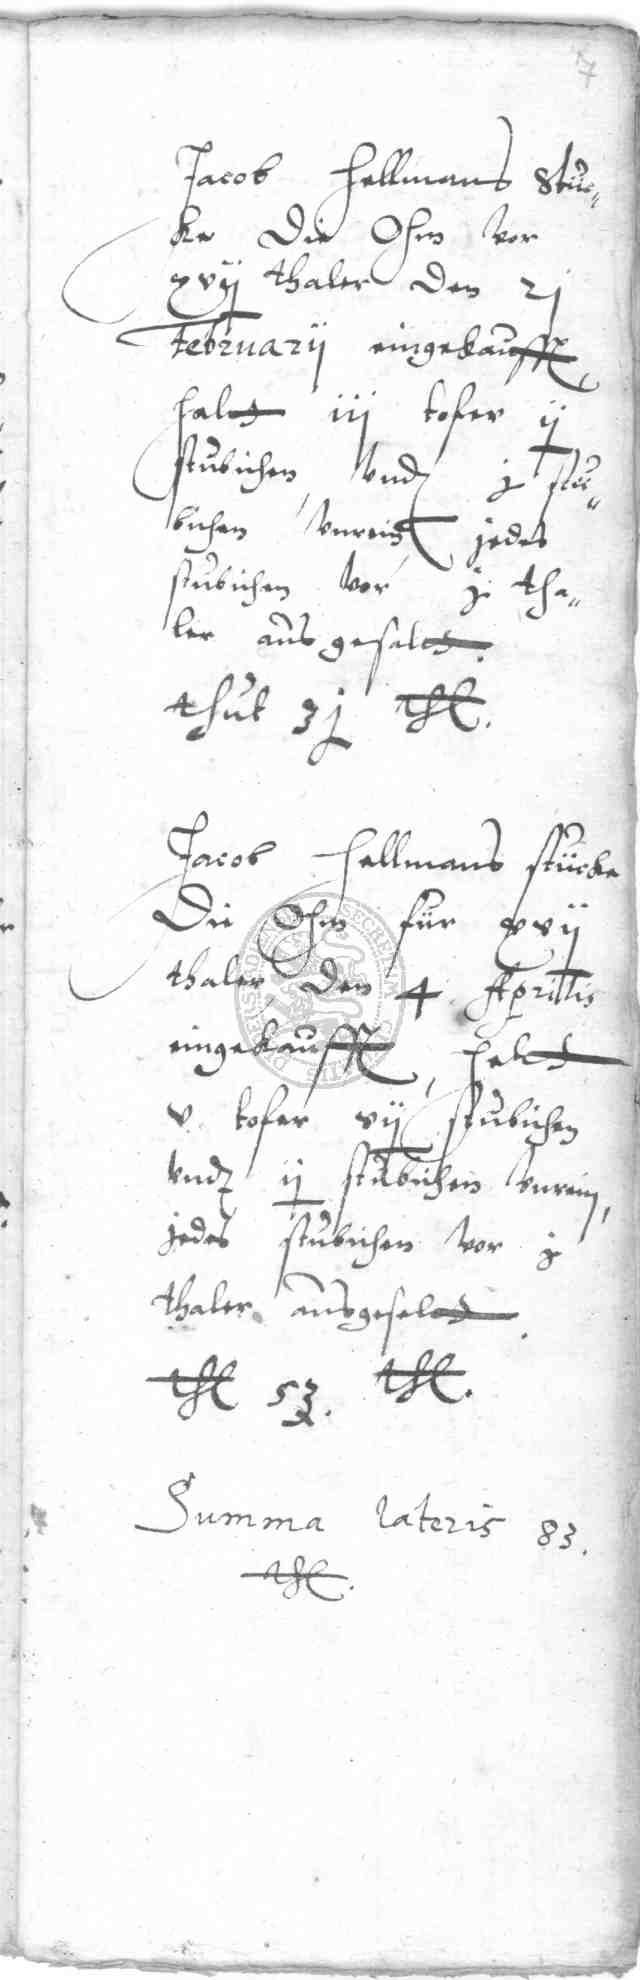 7
Jacob Hellmans Stüc„
ke Die Ohm vor
xvij thaler Den 2j
Februarij eingekaufft
halt iij tofer ij
stübichen, Vnd j stü„
bichen Vnrein jedes
stübichen vor j tha„
ler aus gesaltt.
thut 3j thl.
Jacob Hellmans stücke
Die Ohm für xvij
thaler Den 4 Aprilis
eingekaufft, helt
v tofer vij stübichen
Vnd ij stübichen Vnrein,
jedes stübichen vor j
thaler ausgesaltt.
thl 53. thl.
Summa lateris 83.
thl.